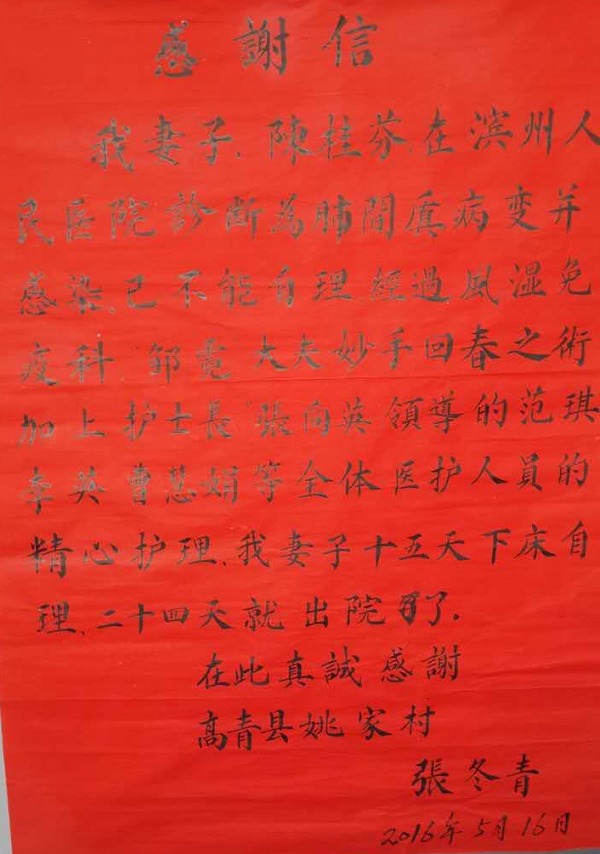 感謝信
我妻子、陳桂芬、在滨州人
民医院診断為肺間质病变并
感染、已不能自理、經過風湿免
疫科 邹霓 大夫妙手回春之術
加上护士長 張向英領導的范琪
李英曹慧娟等全体医护人員的
精心护理、我妻子十五天下床自
理、二十四天就出院了.
在此真誠感謝
高青县姚家村
張冬青
2016年5月16日